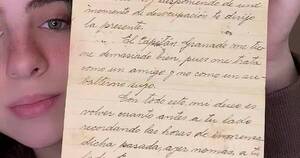 momento de desocupación te dirijo
la presente.
El Capitán Granado me tie-
ne demasiado bien, pues me trata
como un amigo y no como un su-
balterno suyo.
Con todo esto, mi deseo es
volver cuanto antes a tu lado
recordando las horas de inmensa
dicha pasada, ayer nomás, a